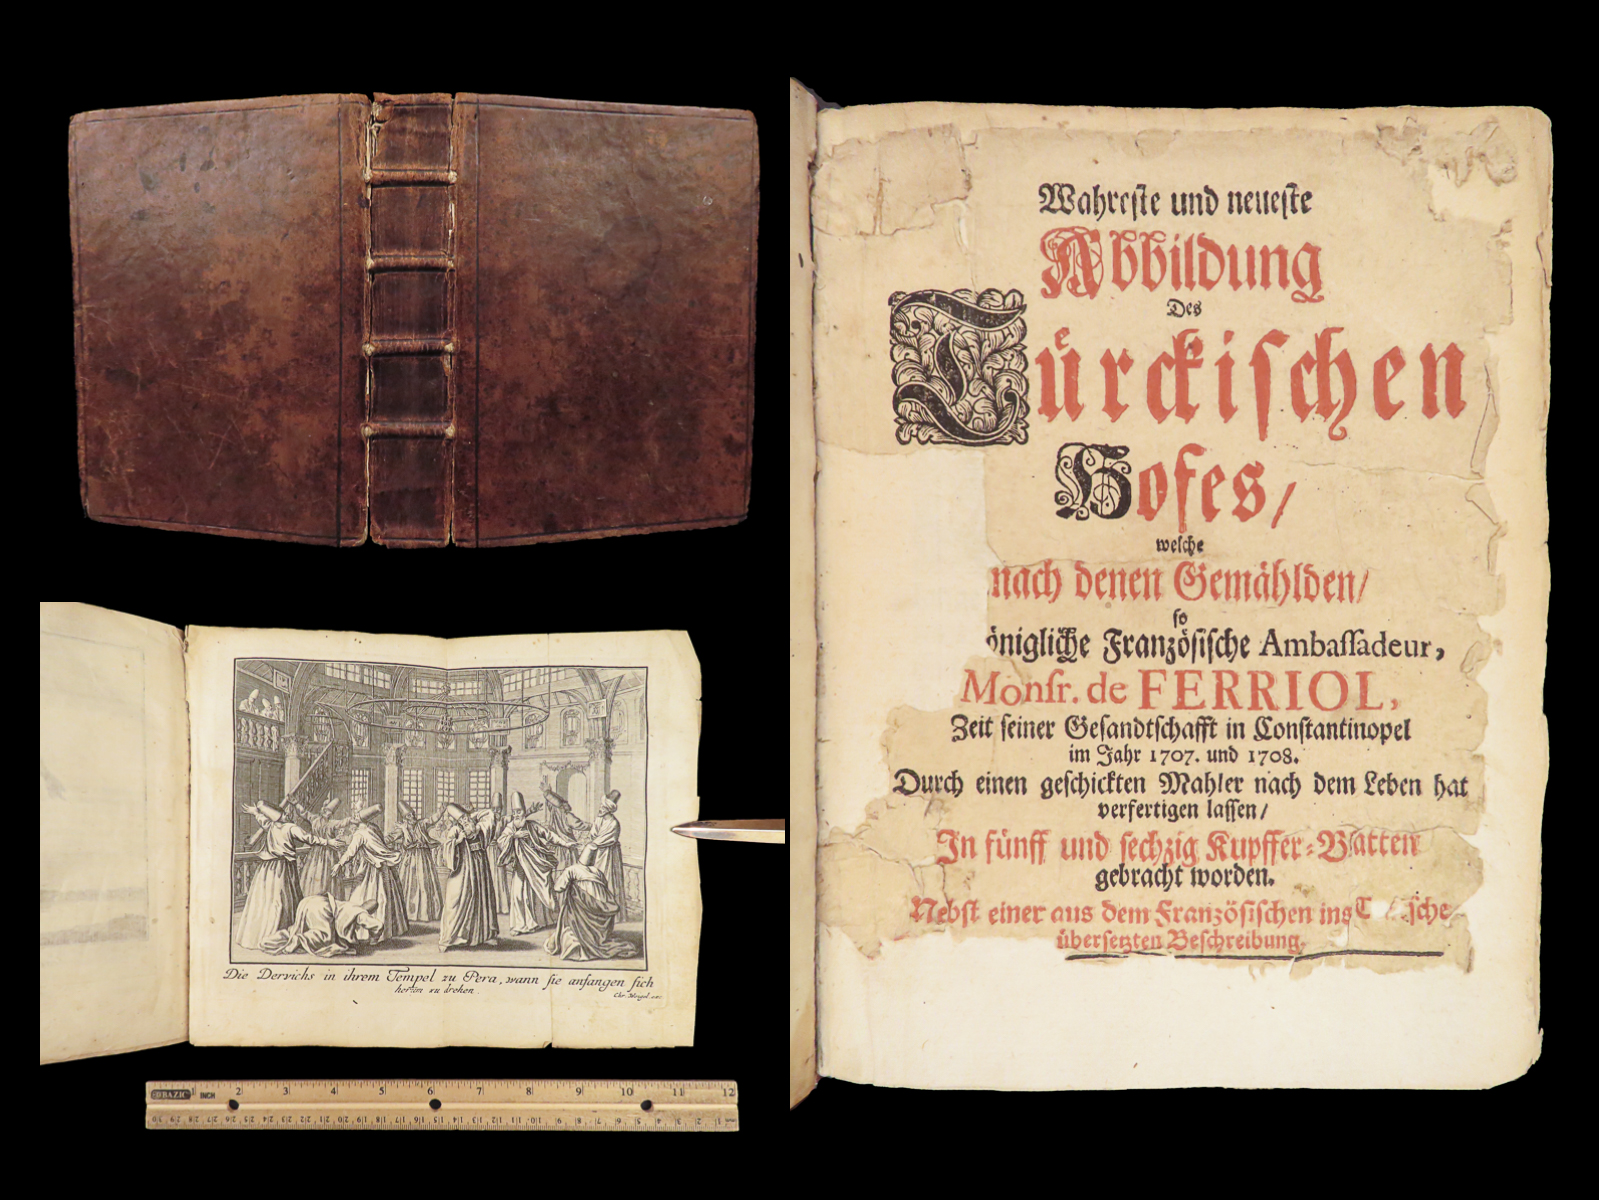 Die Dervichs in ihrem Tempel zu Pera, wann sie anfangen sich
herum zu drehen.
BAZIC 1 INCH 2 3 4 5 6 7 8 9 10 11 12
30 29 28 27 26 25 24 23 22 21 20 19 18 17 16 15 14 13 12 11 10 9 8 7 6 5 4 3 2 1
Wahreste und neueste
Abbildung
Des
Türckischen
Hofes/
welche
nach denen Gemählden/
so
önigliche Französische Ambassadeur,
Monsr. de FERRIOL,
Zeit seiner Gesandtschafft in Constantinopel
im Jahr 1707. und 1708.
Durch einen geschickten Mahler nach dem Leben hat
verfertigen lassen/
In fünff und sechzig Kupffer-Blatten
gebracht worden.
Nebst einer aus dem Französischen ins T sche
übersetzten Beschreibung.